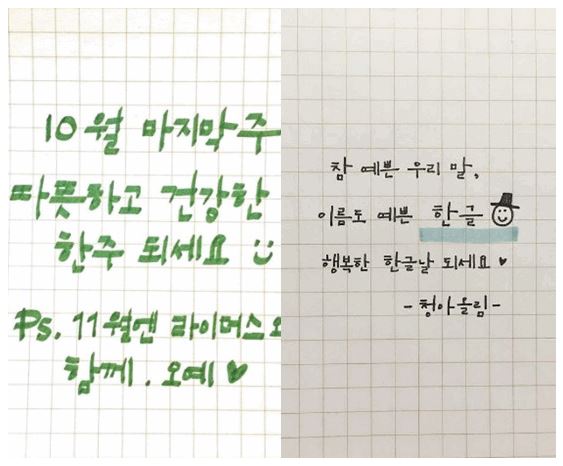 10월 마지막 주
따뜻하고 건강한
한주 되세요
Ps. 11월엔 라이머스와
함께. 오예 ♥
참 예쁜 우리 말,
이름도 예쁜 한글
행복한 한글날 되세요 ♥
- 청아올림 -